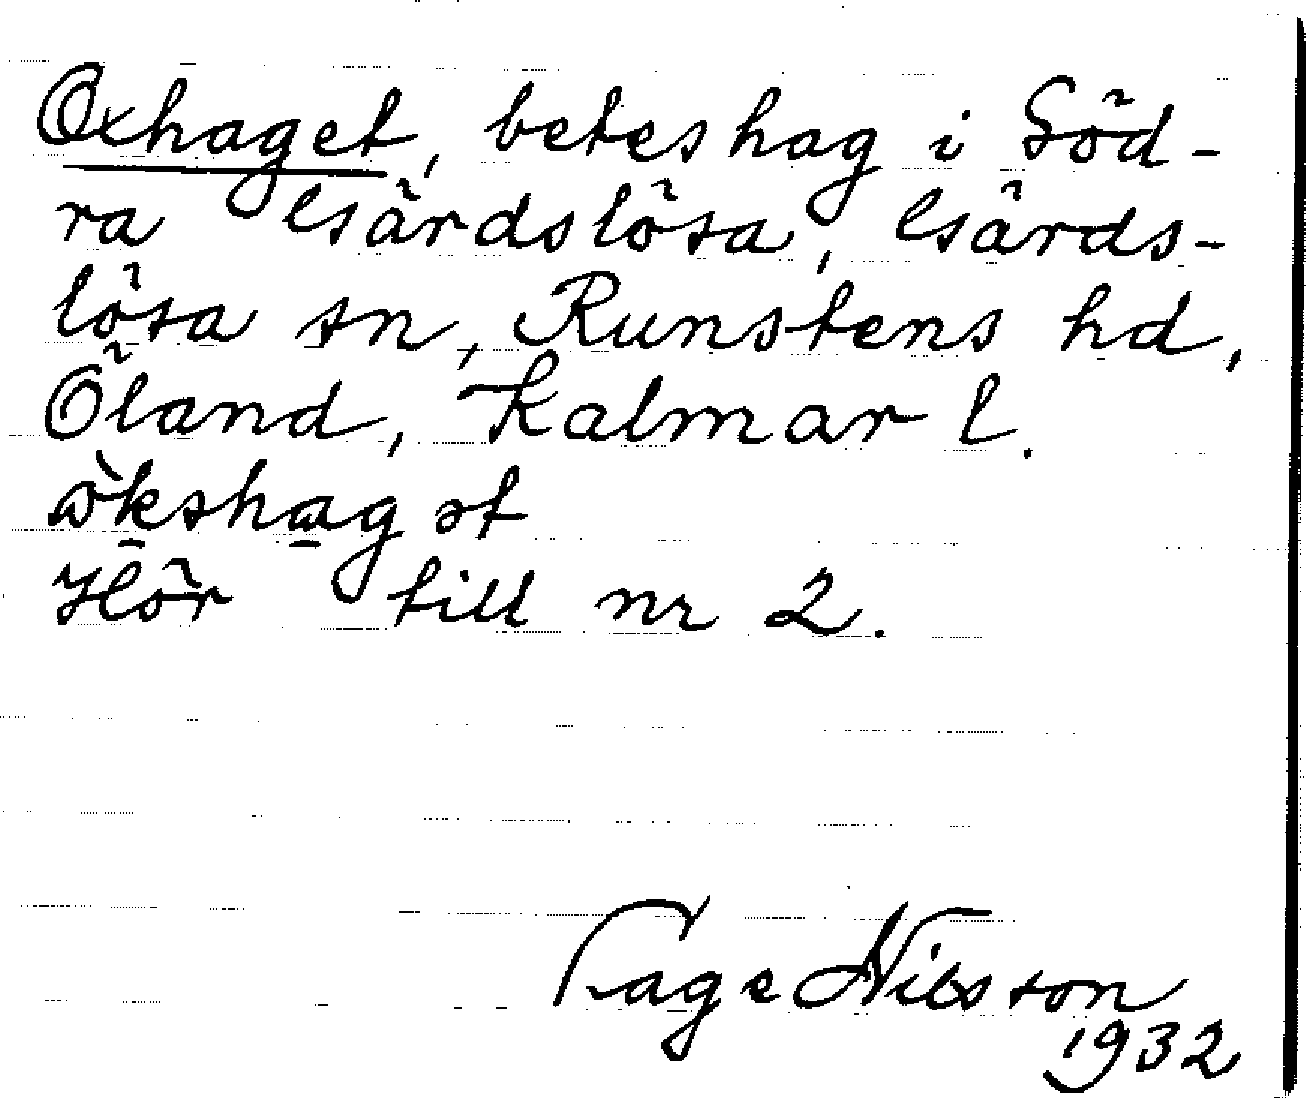 Oxhaget, beteshag i Söd-
ra Gärdslösa, Gärds-
lösa sn, Runstens hd,
Öland, Kalmar l.
Hör till nr 2.
Tage Nilsson
1932